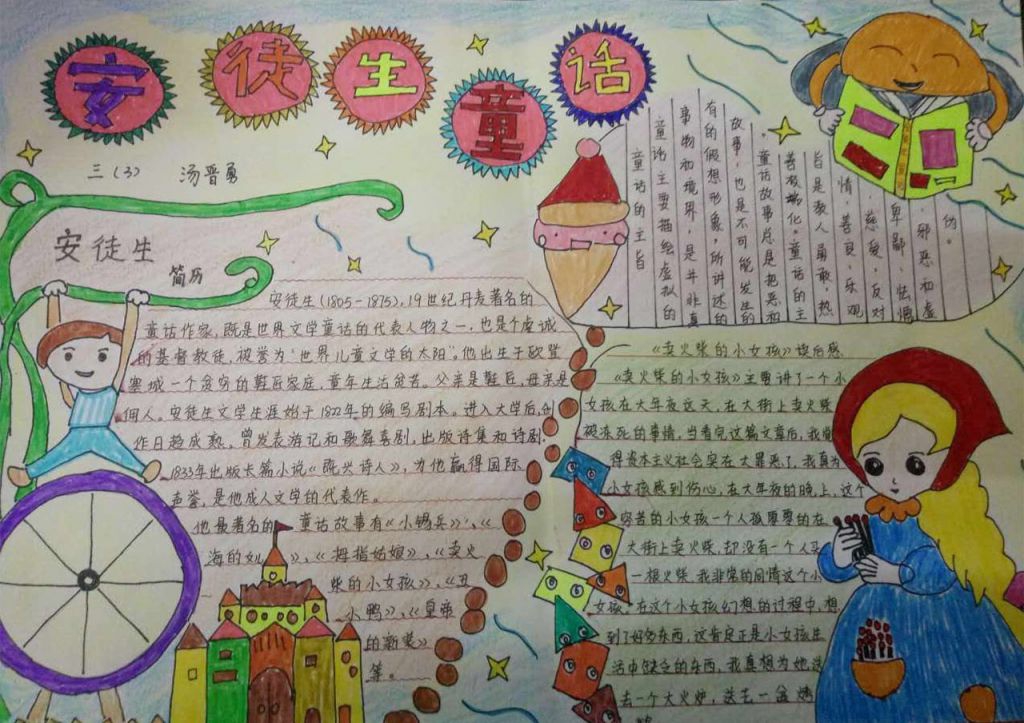 安徒生童话
三(3) 汤晋勇
安徒生
简历
安徒生(1805-1875),19世纪丹麦著名的
童话作家,既是世界文学童话的代表人物之一,也是个虔诚
的基督教徒,被誉为"世界儿童文学的太阳"。他出生于欧登
塞城一个贫穷的鞋匠家庭,童年生活贫苦。父亲是鞋匠,母亲是
佣人。安徒生文学生涯始于1822年的编写剧本。进入大学后,创
作日趋成熟。曾发表游记和歌舞喜剧,出版诗集和诗剧.
1833年出版长篇小说《既兴诗人》,为他赢得国际
声誉,是他成人文学的代表作。
他最著名的童话故事有《小锡兵》、《
海的女儿》、《拇指姑娘》、《卖火
柴的小女孩》、《丑
小鸭》、《皇帝
的新装》
等。
童话的主旨
童话主要描绘虚拟的
事物和境界,是并非真
有的假想形象,所讲述的
故事,也是不可能发生的
。童话故事总是把恶和
善极端化。童话的主
旨是教人勇敢,热
情,善良,乐观
慈爱,反对
卑鄙、怯懦
,邪恶和虚
伪。
《卖火柴的小女孩》读后感
《卖火柴的小女孩》主要讲了一个小
女孩在大年夜这天,在大街上卖火柴
被冻死的事情,当看完这篇文章后,我觉
得资本主义社会实在太罪恶了,我真为
小女孩感到伤心,在大年夜的晚上,这个
容苦的小女孩一个人孤零零的在
大街上卖火柴,却没有一个人买
一根火柴,我非常的同情这个小
女孩。在这个小女孩幻想的过程中,想
到了好多东西,这肯定正是小女孩生
活中缺乏的东西,我真想为她送
去一个大火炉,送去一盒